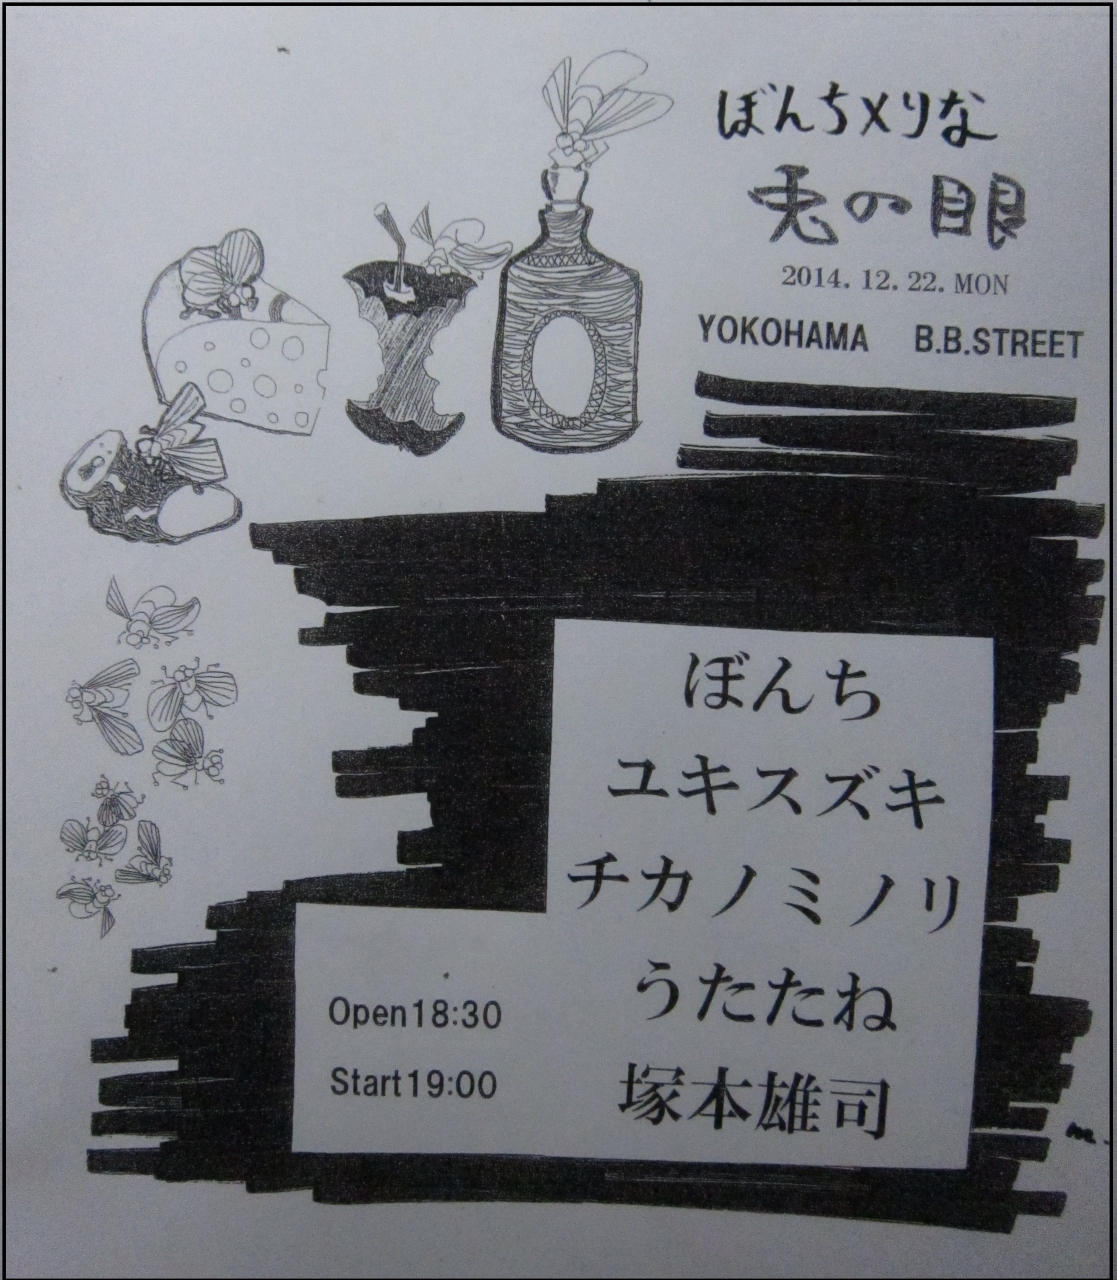 ぼんち×りな
兎の眼
2014. 12. 22. MON
YOKOHAMA B.B.STREET
ぼんち
ユキスズキ
チカノミノリ
うたたね
塚本雄司
Open18:30
Start19:00